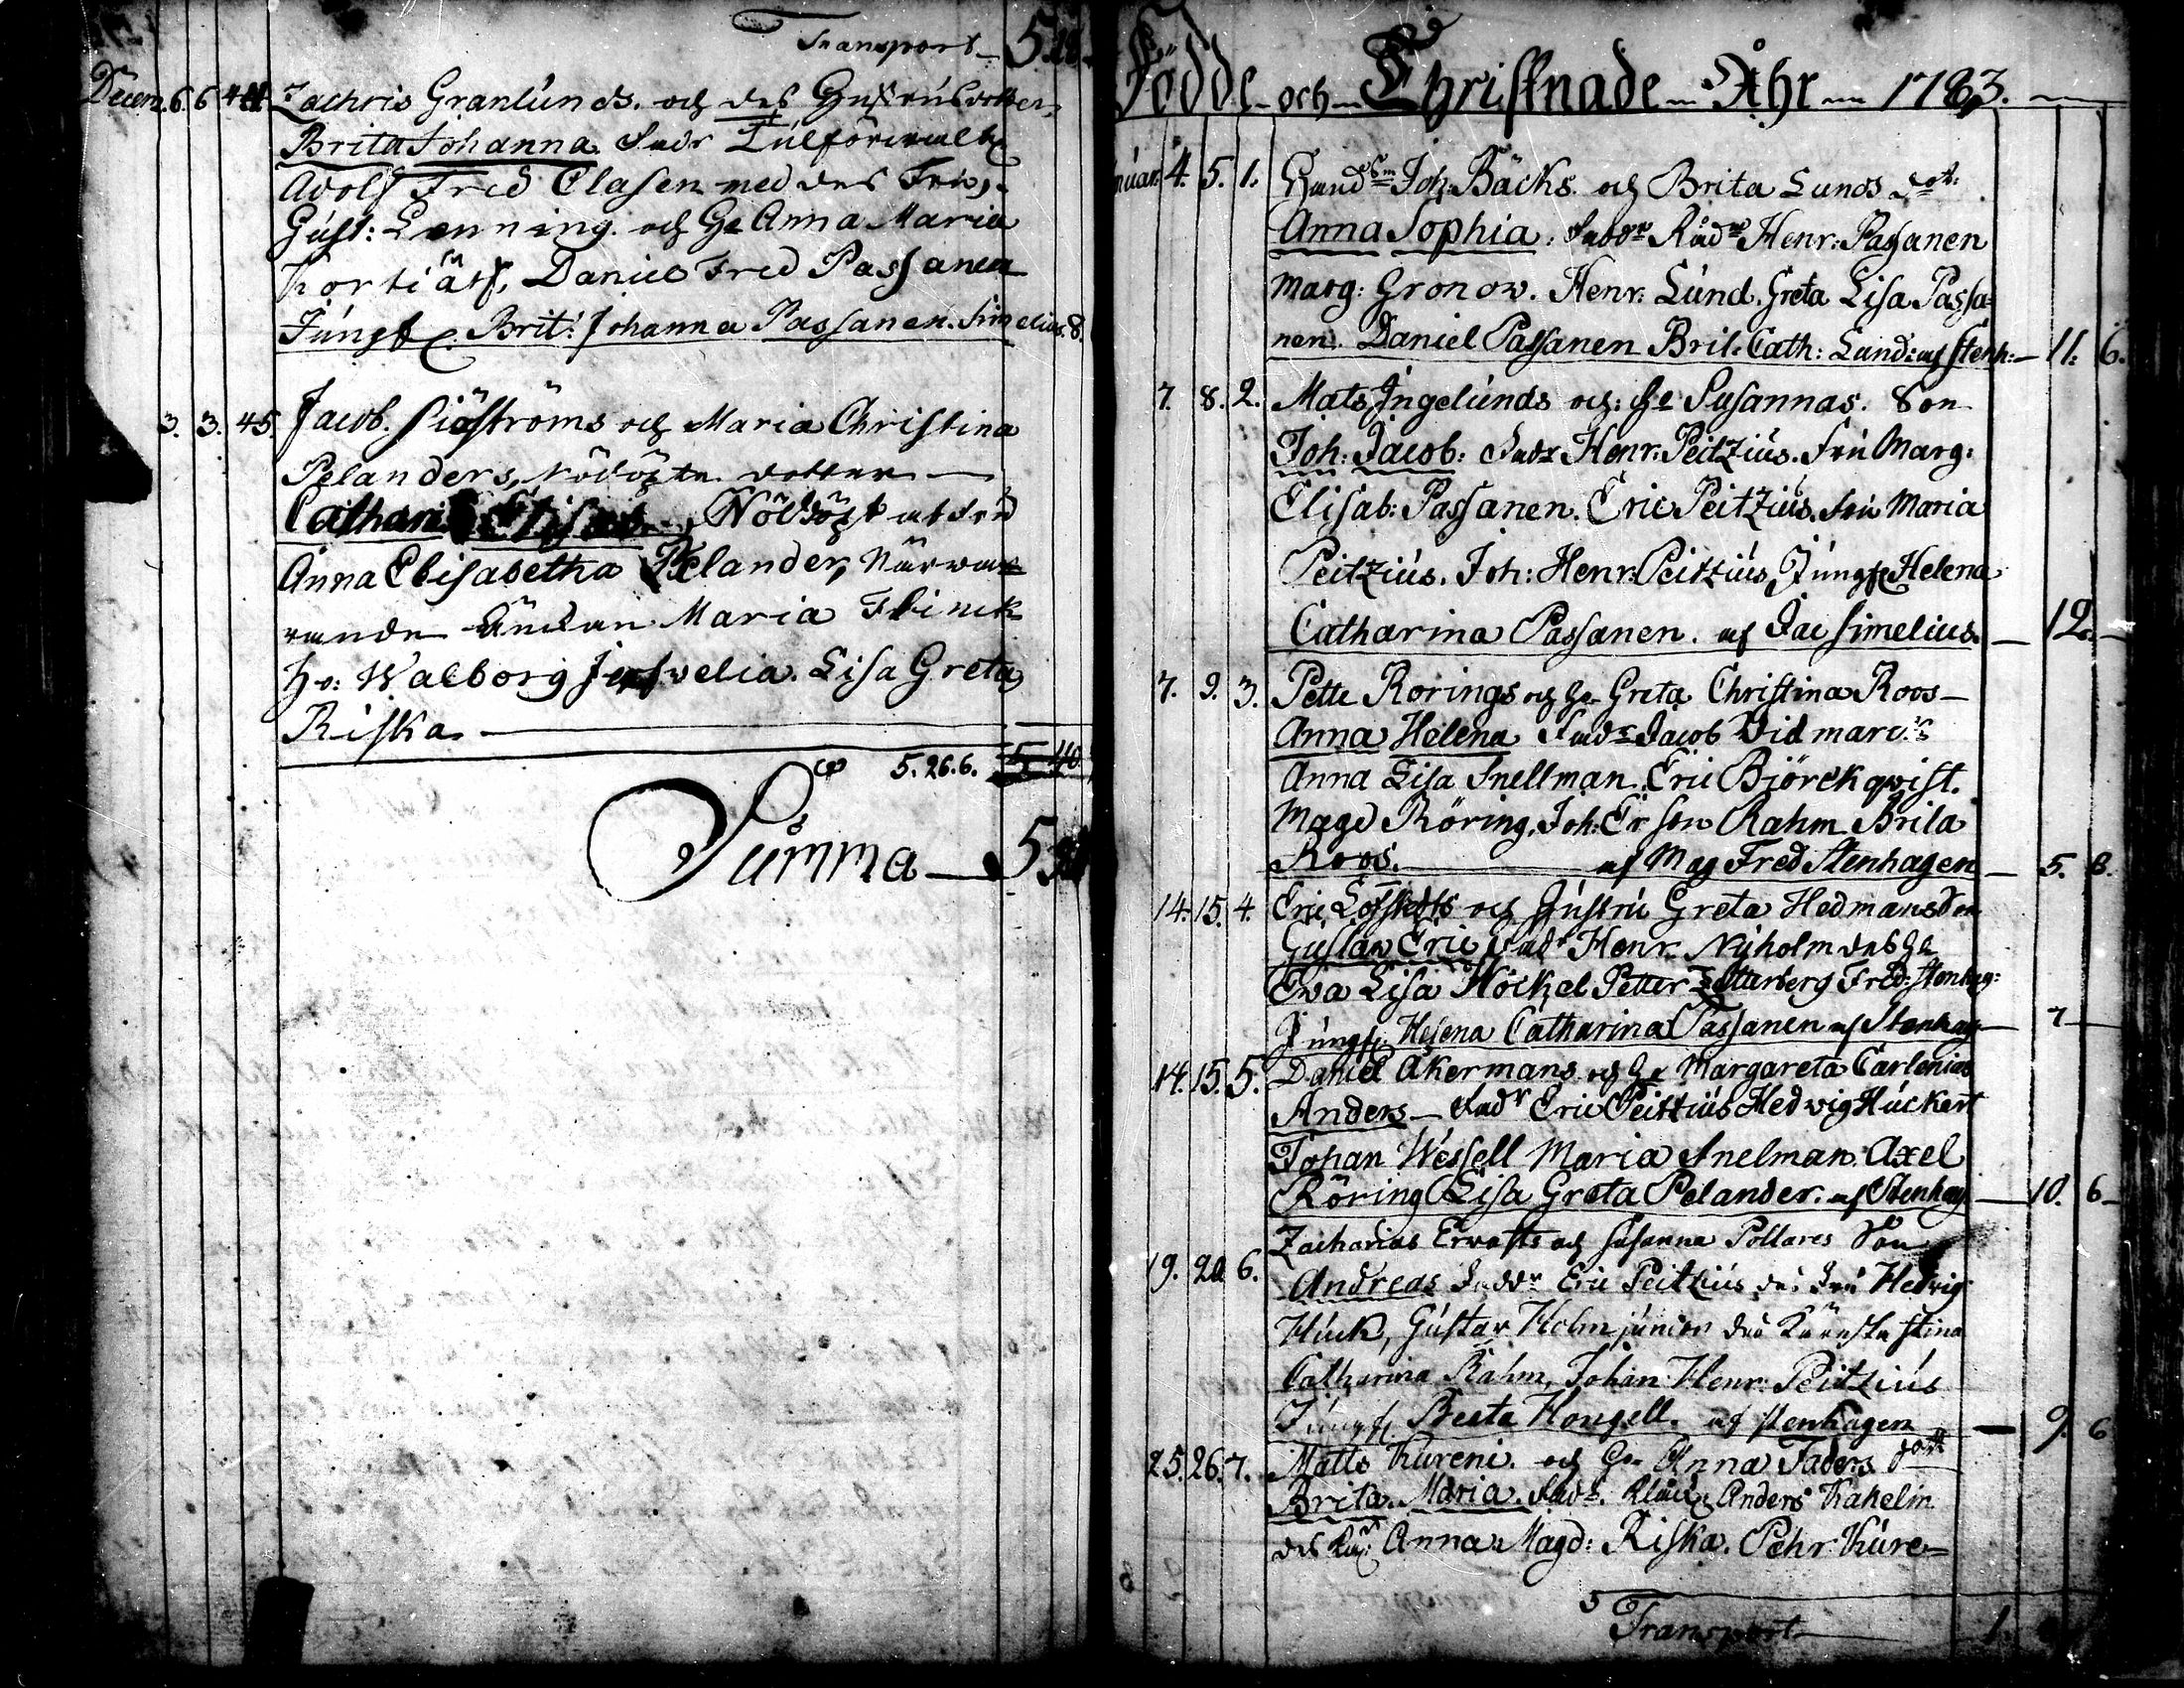 Transport 5.
Decem. 6. 6 44. Zachris Granlunds och des Hustrus dotter
Brita Johanna. Fadr Tulförvalt.
Adolf Fred Clasen med des Fru,
Gust: Lenning. och He Anna Maria
Daniel Fred Passanen
Jungf. Brit: Johanna Passanen. Simelius. 8.
3. 3. 45. Jacob. Siöströms och Maria Christina
Pelanders, nödögte dotter
Catharina Elisab. Nöddögt af Fru
Anna Elisabetha Pelander, närwa-
rande Änckan Maria Flinck
H:o: Walborg Lisa Greta
Riska
5. 26. 6.
Summa 5
Födde och Christnade Åhr 1783.
Januar. 4. 5. 1. Joh. Bäcks. och Brita Lunds dot:
Anna Sophia. Faddr Rådm Henr: Passanen
Marg: Gronow. Henr: Lund. Greta Lisa Passa-
nen. Daniel Passanen Brit. Cath: Lund: af Stenh: 11. 6.
7. 8. 2. Mats Ingelunds och He Susannas. Son
Joh: Jacob: Fadr Henr: Peitzius. Fru Marg:
Elisab: Passanen. Eric Peitzius. Fru Maria
Peitzius. Joh: Henr: Peitzius, Jungf Helena
Catharina Passanen. af Jac Simelius. 12.
7. 9. 3. Pette Rorings och He Greta Christina Roos
Anna Helena Fadr Jacob Widmarc
Anna Lisa Snellman. Eric Björckqwist.
Magd Röring, Joh: Erson Rahm Brita
Roos. af Mag Fred Stenhagen 5. 8.
14. 15. 4. Eric Löfstedts och Hustru Greta Hedmans Son
Gustaw Eric Fadr Henr. Nyholm des He
Ewa Lisa Höckel Petter Zetterberg Fred: Stenhag:
Jungf. Helena Catharina Passanen af Stenhag 7
14. 15. 5. Daniel Åkermans och He Margareta Carlenias
Anders Fadr Eric Peitzius Hedwig Huckert
Johan Wessell Maria Snelman. Axel
Röring Lisa Greta Pelander. af Stenhag 10. 6
19. 20 6. Zacharias Erwasts och Susanna Pollares Son
Andreas Faddr Eric Peitzius des Fru Hedwig
Huck, Gustav Holm junior des Käresta Stina
Catharina Rahm, Johan Henr: Peitzius
Jungf. Beata Hongell. af Stenhagen 9. 6
25. 26. 7. Matts Kureni. och He Anna Faders dott
Brita Maria. Fadr. Anders Kahelin
des Anna Magd: Riska. Pehr Kure-
Transport 1.